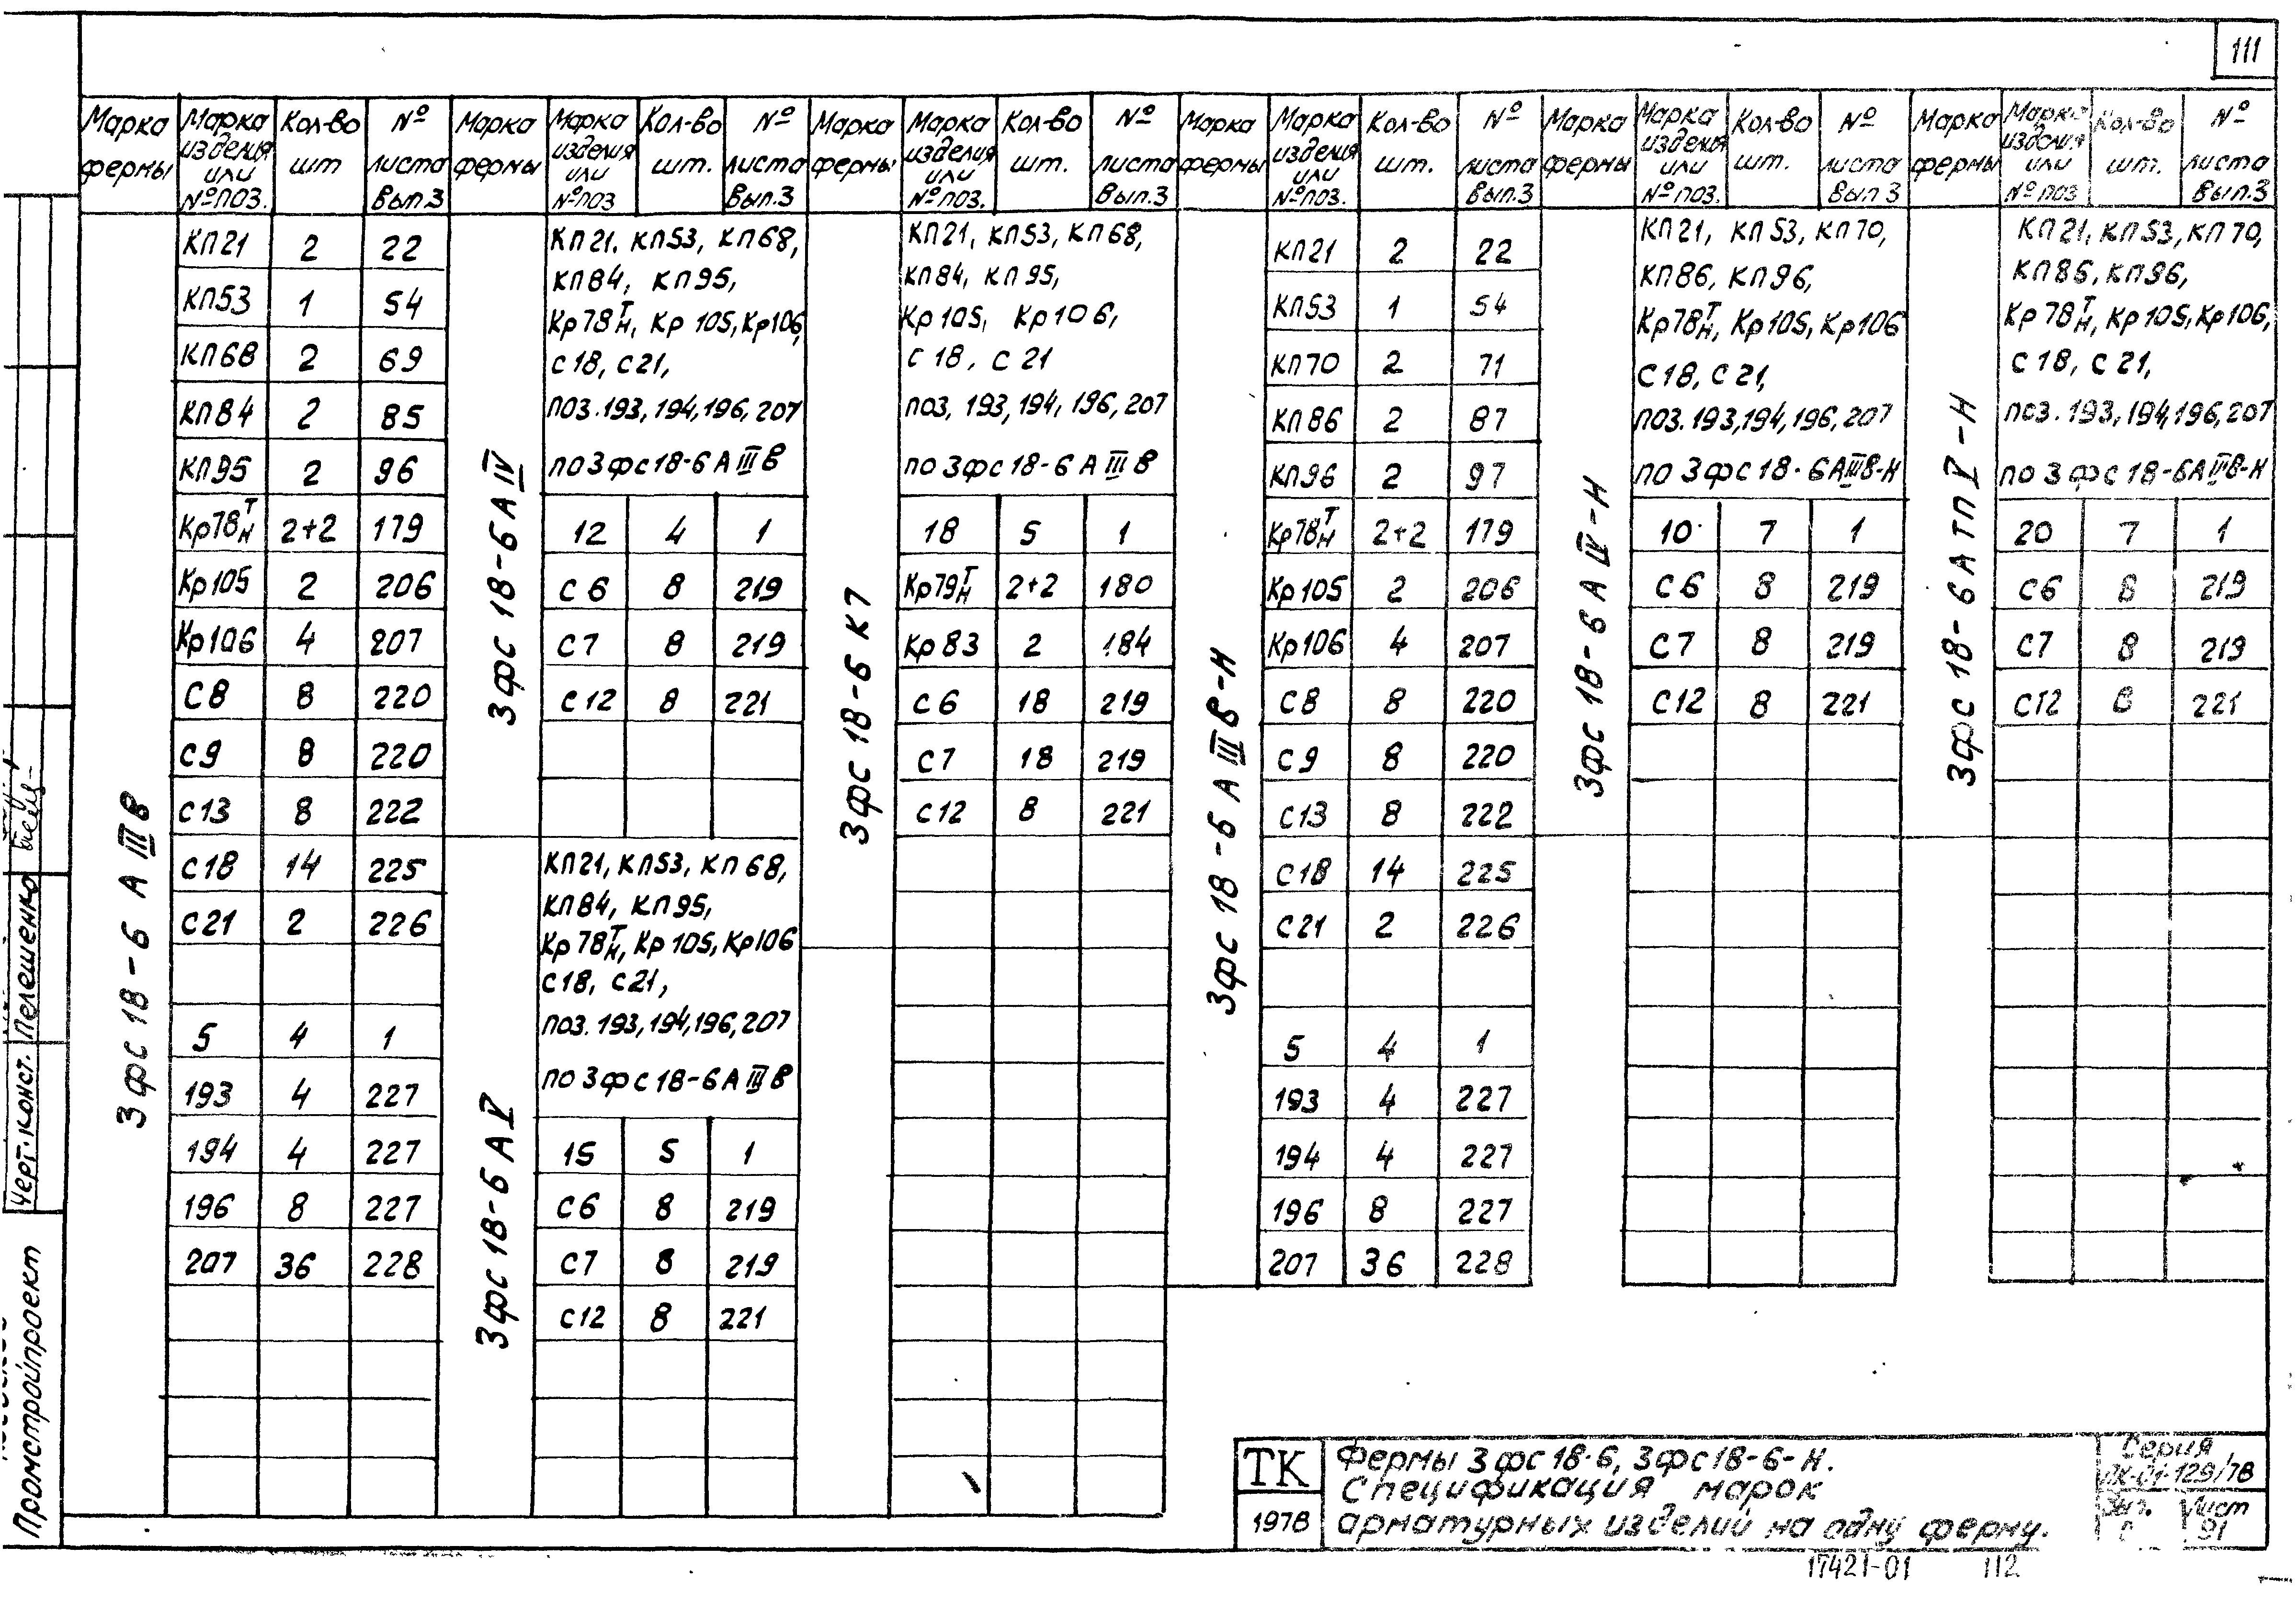 111
Марка фермы | Марка изделия или №поз. | Кол-во шт | № листа Вып.3 | Марка фермы | Марка изделия или №поз | Кол-во шт. | № листа Вып.3 | Марка фермы | Марка изделия или №поз. | Кол-во шт. | № листа Вып.3 | Марка фермы | Марка изделия или №поз. | Кол-во шт. | № листа Вып.3 | Марка фермы | Марка изделия или №поз. | Кол-во шт. | № листа Вып 3 | Марка фермы | Марка изделия или №поз | Кол-во шт. | № листа Вып.3
3фс 18-6 А IIIв
КП21 2 22
КП53 1 54
КП68 2 69
КП84 2 85
КП95 2 96
Кр78Т/Н 2+2 179
Кр105 2 206
Кр106 4 207
С8 8 220
С9 8 220
С13 8 222
С18 14 225
С21 2 226
5 4 1
193 4 227
194 4 227
196 8 227
207 36 228
3фс 18-6 А IV
КП21, КП53, КП68,
КП84, КП95,
Кр78Т/Н, Кр 105, Кр106,
С18, С21,
поз.193, 194, 196, 207
по 3фс18-6 А III в
12 4 1
С6 8 219
С7 8 219
С12 8 221
3фс 18-6 А V
КП21, КП53, КП 68,
КП84, КП95,
Кр78Т/Н, Кр 105, Кр106
С18, С21,
поз.193, 194, 196, 207
по 3фс18-6 А III в
15 5 1
С6 8 219
С7 8 219
С12 8 221
3фс 18-6 К7
КП21, КП53, КП68,
КП84, КП95,
Кр105, Кр106,
С18, С21
поз, 193, 194, 196, 207
по 3фс18-6 А III в
18 5 1
Кр79Т/Н 2+2 180
Кр83 2 184
С6 18 219
С7 18 219
С12 8 221
3фс 18-6 А IIIв-Н
КП21 2 22
КП53 1 54
КП70 2 71
КП86 2 87
КП96 2 97
Кр78Т/Н 2+2 179
Кр105 2 206
Кр106 4 207
С8 8 220
С9 8 220
С13 8 222
С18 14 225
С21 2 226
5 4 1
193 4 227
194 4 227
196 8 227
207 36 228
3фс 18-6 А IV-Н
КП21, КП53, КП70,
КП86, КП96,
Кр78Т/Н, Кр105, Кр106
С18, С21,
поз.193, 194, 196, 207
по 3фс18-6АIIIв-Н
10 7 1
С6 8 219
С7 8 219
С12 8 221
3фс 18-6АТП V-Н
КП21, КП53, КП70,
КП86, КП96,
Кр78Т/Н, Кр105, Кр106,
С18, С21,
поз.193, 194, 196, 207
по 3фс18-6АIIIв-Н
20 7 1
С6 8 219
С7 8 219
С12 8 221
Черт.-конст. Пелешенко
Промстройпроект
ТК
1978
Фермы 3фс18-6, 3фс18-6-Н.
Спецификация марок
арматурных изделий на одну ферму.
Серия
ПК-01-129/78
Вып. Лист
91
17421-01 112